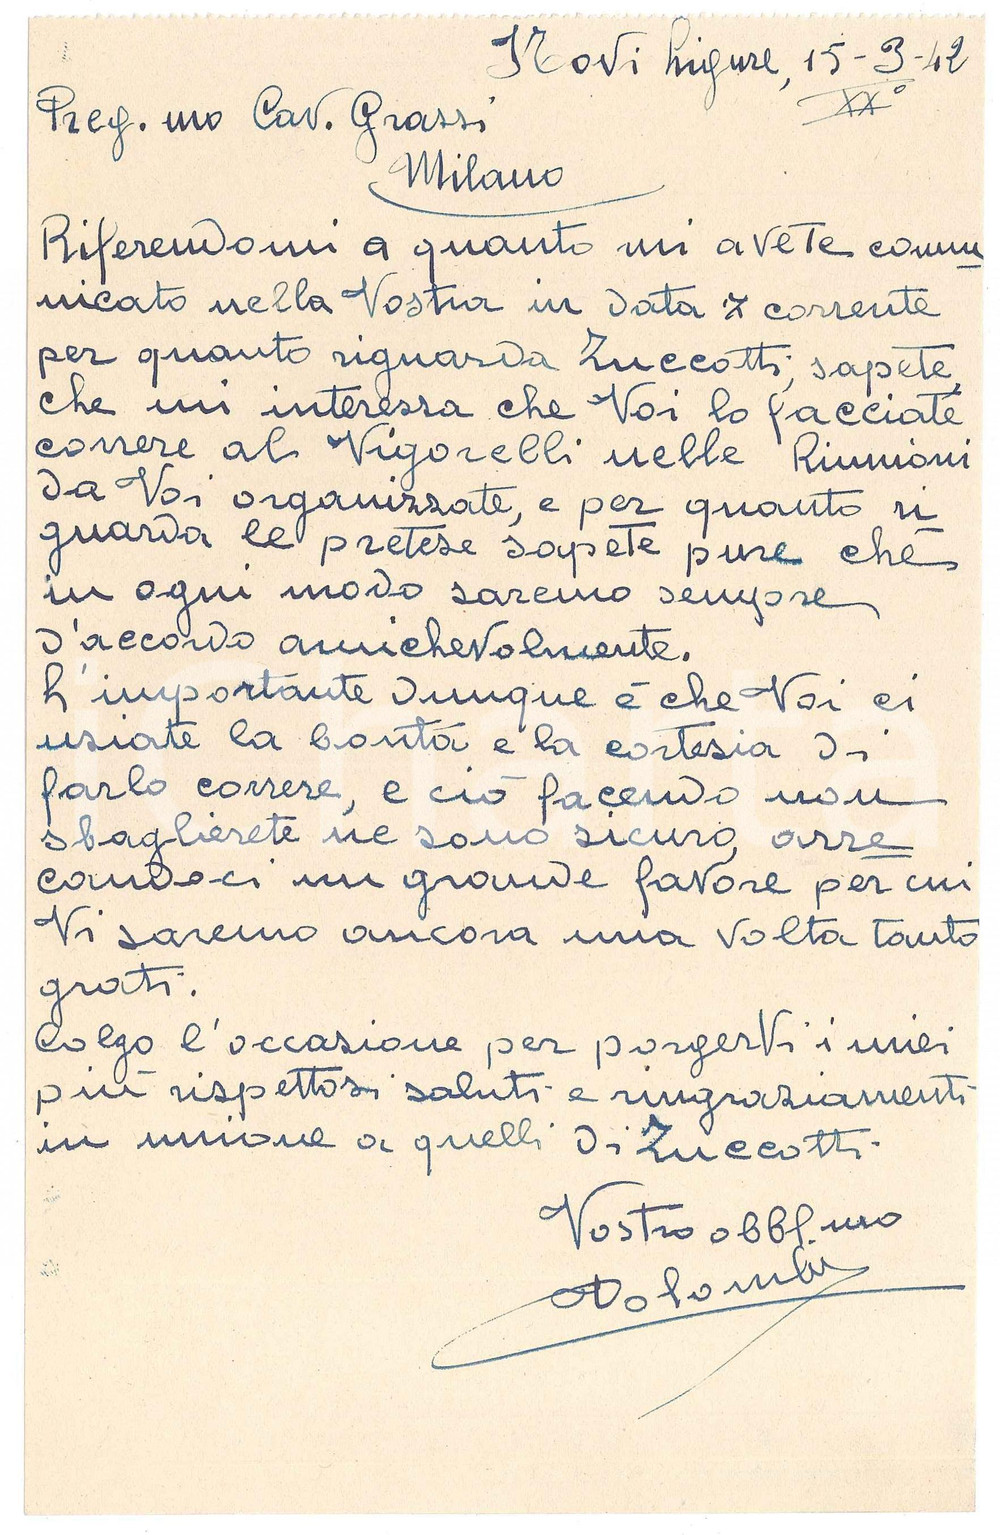 Novi Ligure, 15-3-42
XX°
Preg.mo Cav. Grassi
Milano
Riferendomi a quanto mi avete comu
nicato nella Vostra in data 7 corrente
per quanto riguarda Zuccotti, sapete,
che mi interessa che Voi lo facciate
correre al Vigorelli nelle Riunioni
da Voi organizzate, e per quanto ri
guarda le pretese sapete pure che
in ogni modo saremo sempre
d'accordo amichevolmente.
L'importante dunque è che Voi ci
usiate la bontà e la cortesia di
farlo correre, e ciò facendo non
sbaglierete ne sono sicuro, arre
candoci un grande favore per cui
Vi saremo ancora una volta tanto
grati.
Colgo l'occasione per porgerVi i miei
più rispettosi saluti e ringraziamenti
in unione a quelli di Zuccotti
Vostro obbl.mo